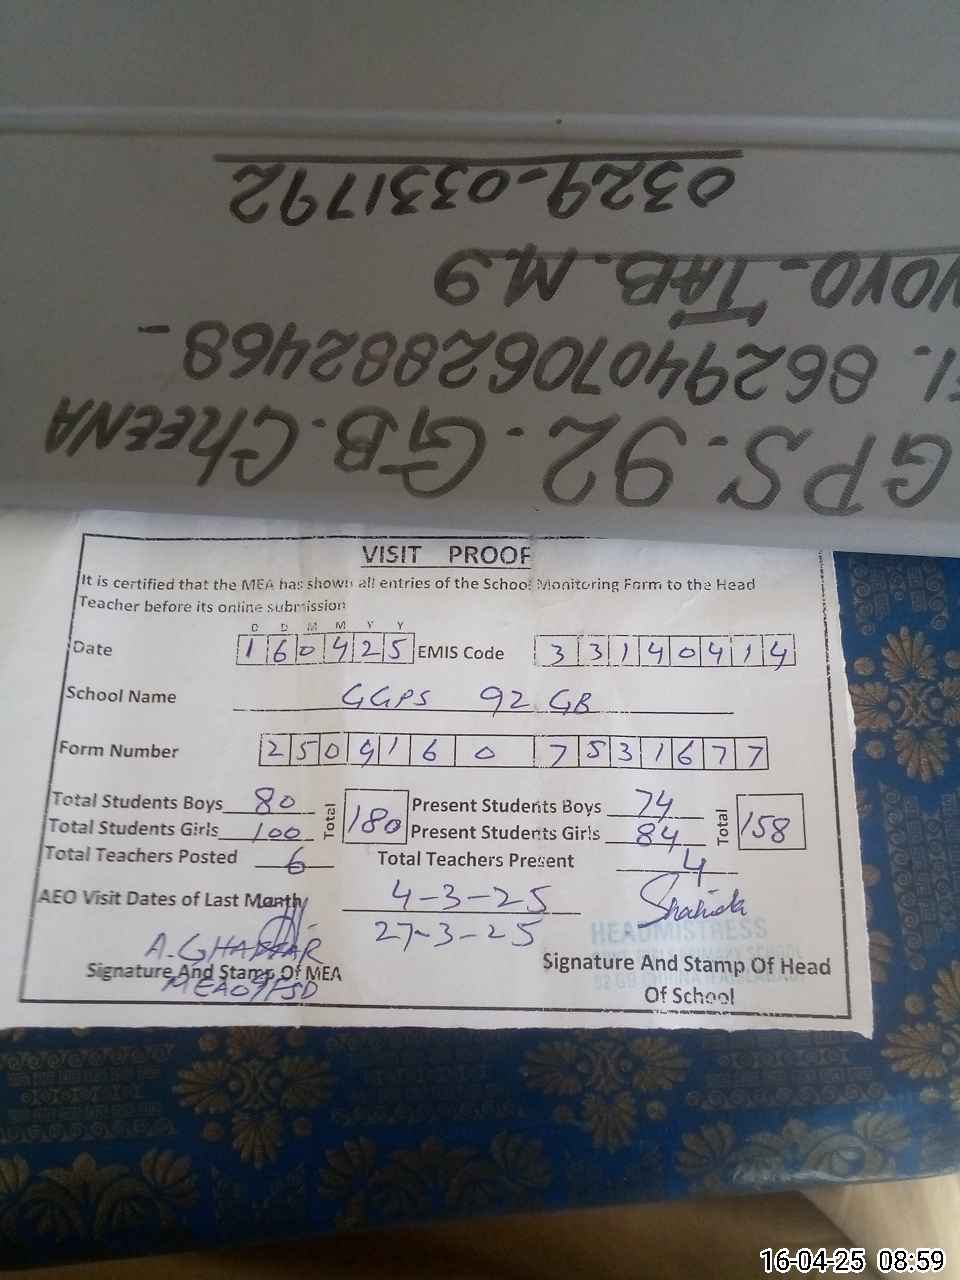 0329-0331792
NOYO-TAB.M.9
EI. 8629407062882468-
GPS.92.GB.CHEENA
VISIT PROOF
It is certified that the MEA has shown all entries of the School Monitoring Form to the Head
Teacher before its online submission
D D M M Y Y
Date 160425 EMIS Code 33140414
School Name GGPS 92 GB
Form Number 25041607531677
Total Students Boys 80 Total 180 Present Students Boys 74 Total 158
Total Students Girls 100 Present Students Girls 84
Total Teachers Posted 6 Total Teachers Present 4
AEO Visit Dates of Last Month 4-3-25
27-3-25
Shahida
HEADMISTRESS
A.GHAFFAR
Signature And Stamp Of MEA
MEA09FSD
Signature And Stamp Of Head
Of School
16-04-25 08:59